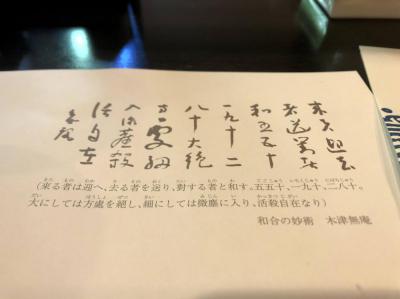 来者迎去
者送對者
和五五十
一九十二
八十大絶
方處細
入微塵殺
活自在
(来る者は迎へ、去る者を送り、對する者と和す。五五十、一九十、二八十。
大にしては方處を絶し、細にしては微塵に入り、活殺自在なり)
和合の妙術　木津無庵